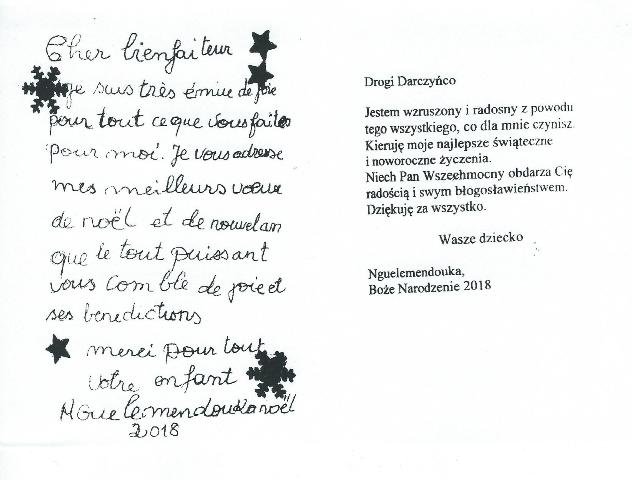 Cher bienfaiteur
je suis très émiue de joie
pour tout ce que vous faites
pour moi. Je vous adresse
mes meilleurs vœux
de noël et de nouvelan
que le tout puissant
vous comble de joie et
ses benedictions
merci pour tout
votre enfant
Nguelemendouka noël
2018
Drogi Darczyńco
Jestem wzruszony i radosny z powodu
tego wszystkiego, co dla mnie czynisz.
Kieruję moje najlepsze świąteczne
i noworoczne życzenia.
Niech Pan Wszechmocny obdarza Cię
radością i swym błogosławieństwem.
Dziękuję za wszystko.
Wasze dziecko
Nguelemendouka,
Boże Narodzenie 2018